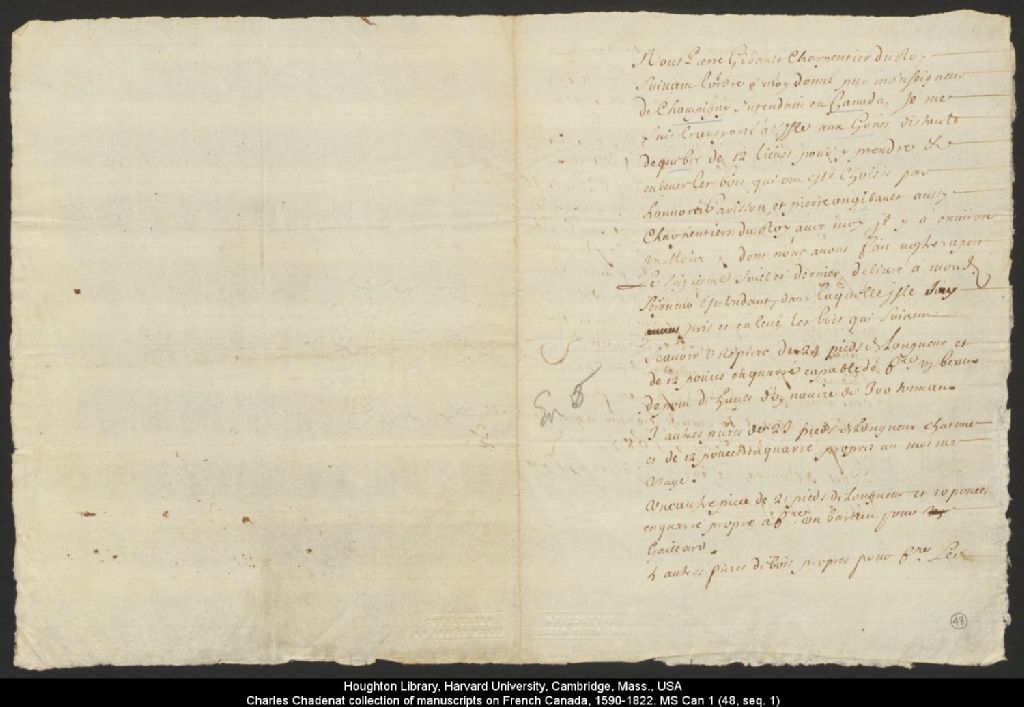 Nous Pierre Gibault Charpentier du Roy
Suivant l'ordre a moy donné par monseigneur
de Champigny Intendant en Canada, Je me
Suis transporté a l'Isle aux Grües distante
de quebec de 12 lieües pour y prendre &
enlever les bois qui ont esté choisis par
et pierre gibault aussy
Charpentiers du Roy avec moy il y a environ
un Mois, dont nous avons fait nostre raport
Le Juillet dernier, delivré a mond.
Seigneur Intendant, dans laquelle isle Jay
pris et enlevé les bois qui suivent
Sçavoir Une piece de 24 pieds de Longueur et
de 12 pouces en quarré capable de fre un beau
de pont de haut d'un navire de 300 tonneau
3 autres pieces de 23 pieds de Longueur chacune
et de 12 pouces en quarré propres au mesme
Usage.
Une autre piece de 21 pieds de Longueur et 10 pouces
en quarré propre a fre un barreau pour
Gaillard.
4 autres pieces de bois propres pour fre Les
En 5
48
Houghton Library, Harvard University, Cambridge, Mass., USA
Charles Chadenat collection of manuscripts on French Canada, 1590-1822. MS Can 1 (48, seq. 1)